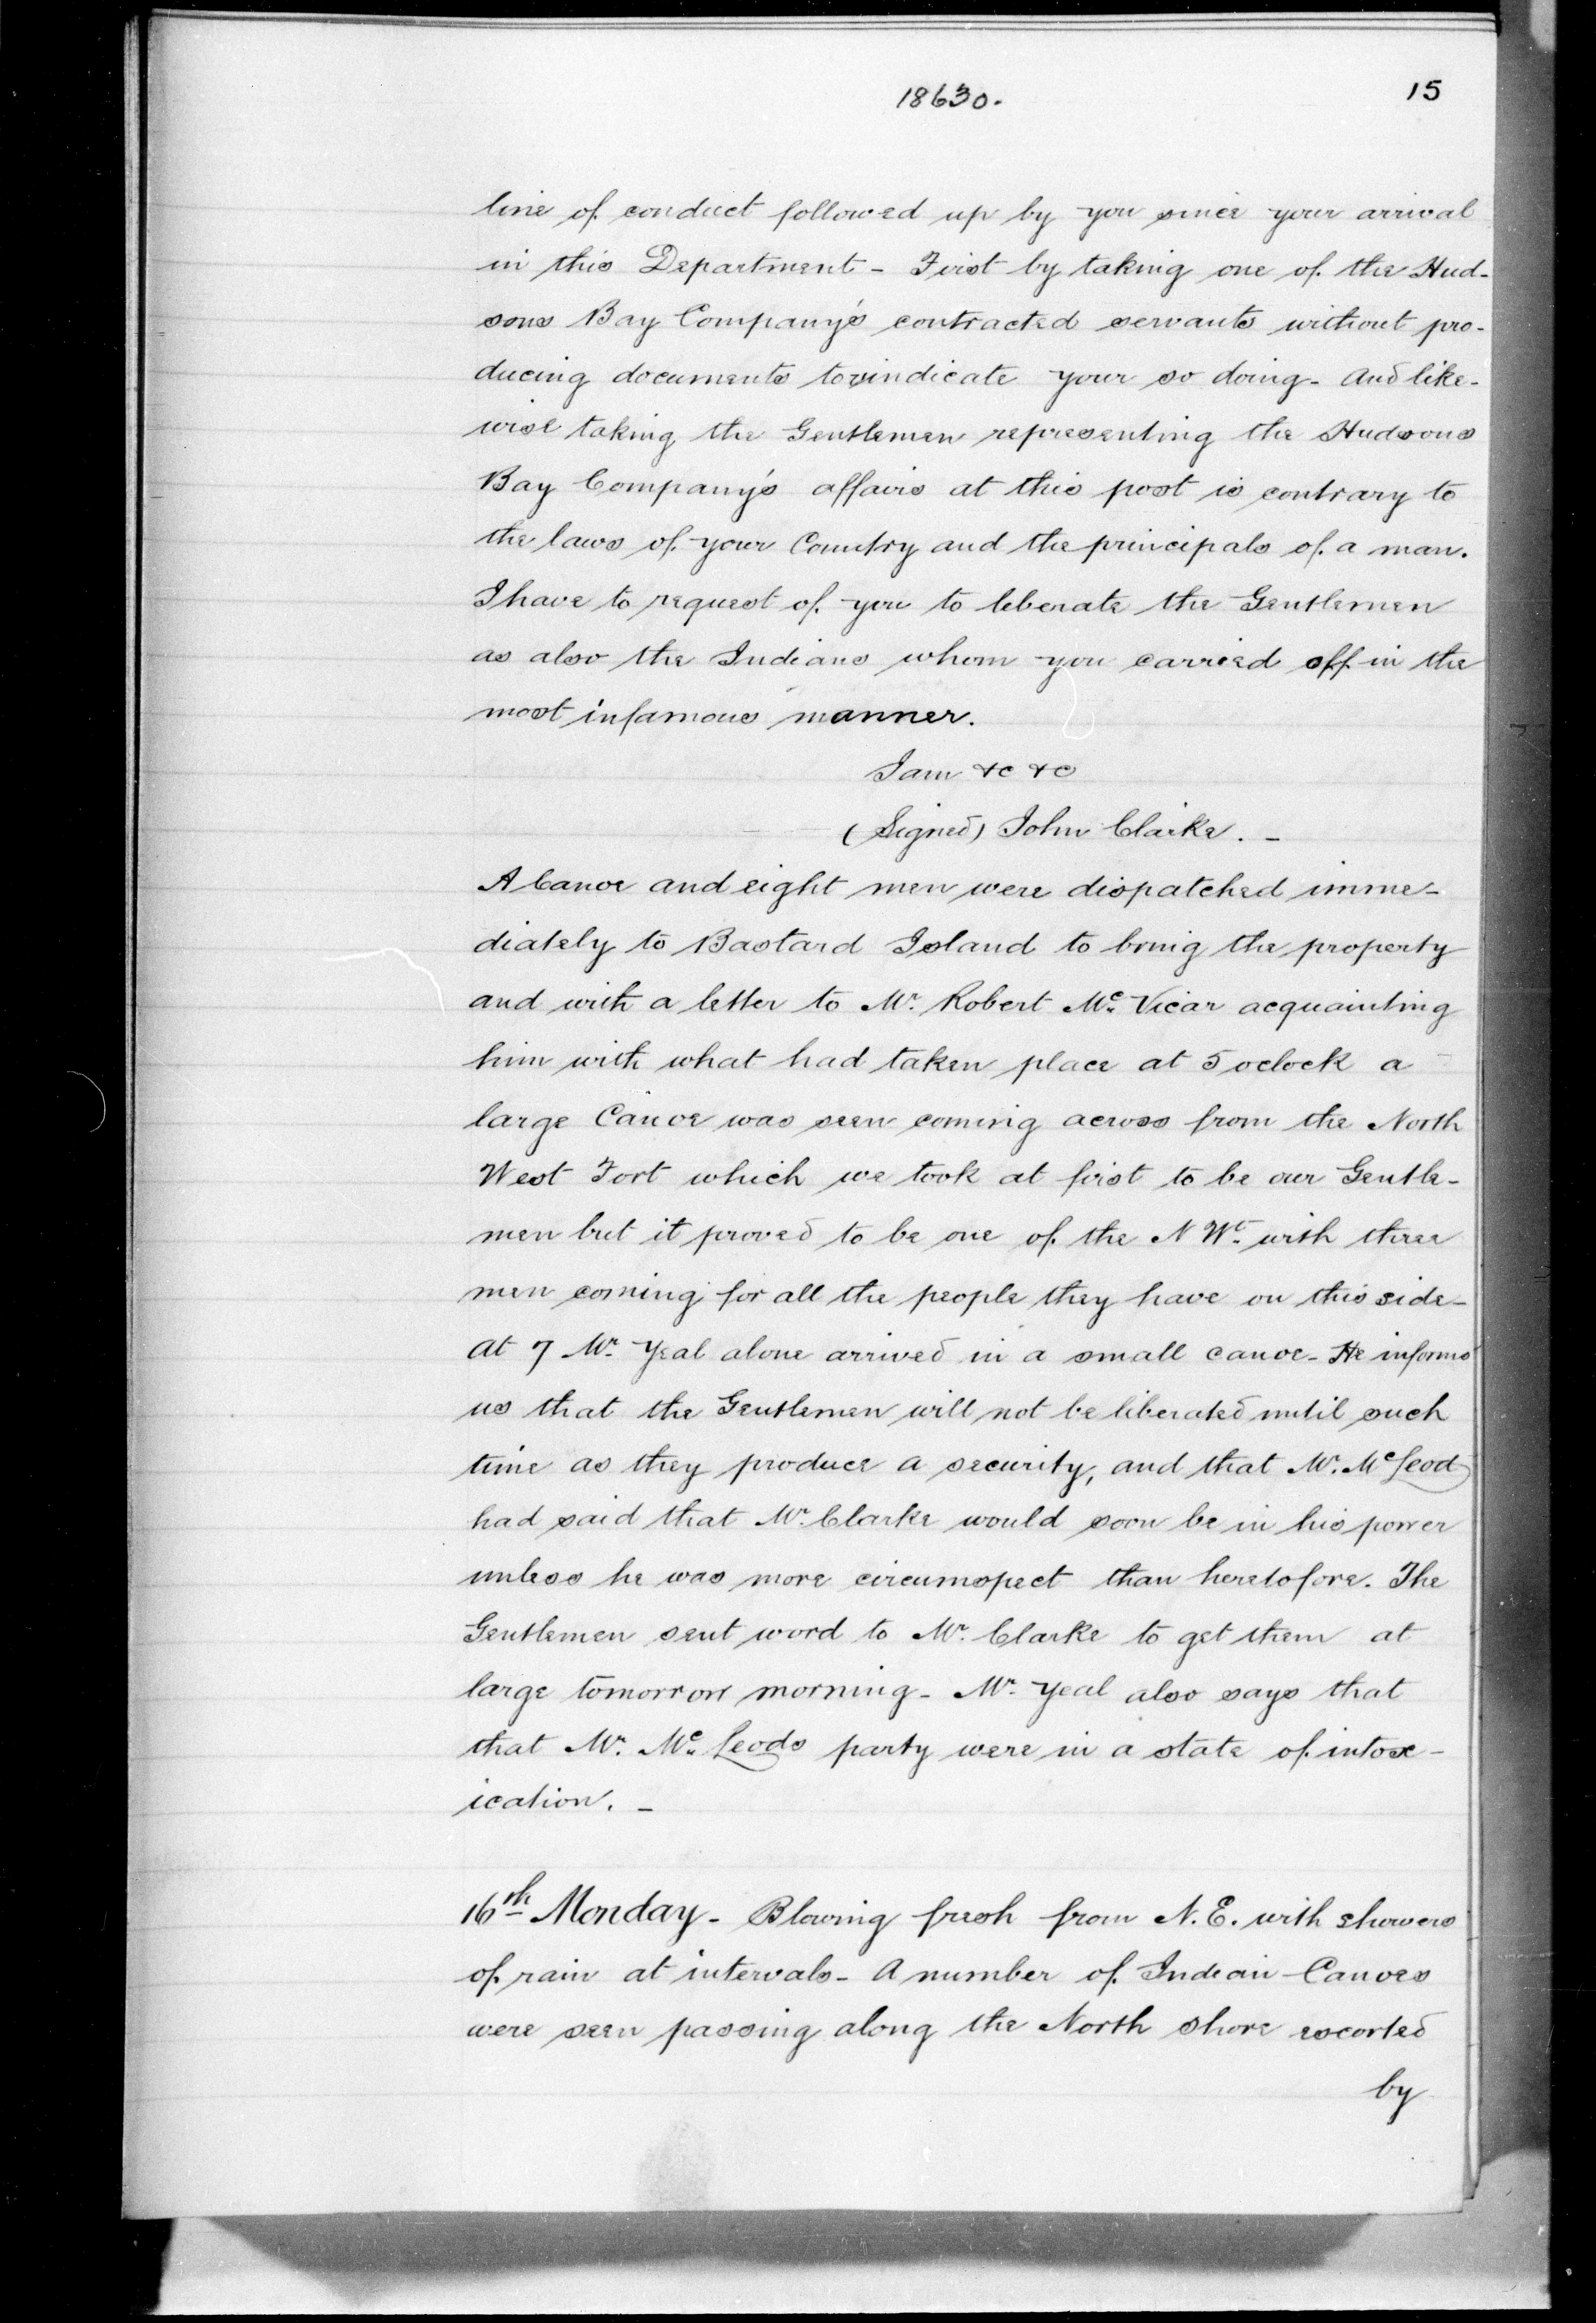 18630.
15
line of conduct followed up by you since your arrival
in this Department - First by taking one of the Hud-
sons Bay Company's contracted servants without pro-
ducing documents to vindicate your so doing - And like-
wise taking the Gentlemen representing the Hudsons
Bay Company's affairs at this post is contrary to
the laws of your Country and the principals of a man.
I have to request of you to leberate the Gentlemen
as also the Indians whom you carried off in the
most infamous manner.
I am &c &c
(Signed) John Clarke. -
A Canoe and eight men were dispatched imme-
diately to Bastard Island to bring the property
and with a letter to Mr. Robert Mc. Vicar acquainting
him with what had taken place at 5 oclock a
large Canoe was seen coming across from the North
West Fort which we took at first to be our Gentle-
men but it proved to be one of the N Wt. with three
men coming for all the people they have on this side -
At 7 Mr. Yeal alone arrived in a small canoe - He informs
us that the Gentlemen will not be liberated until such
time as they produce a security, and that Mr. McLeod
had said that Mr. Clarke would soon be in his power
unless he was more circumspect than heretofore. The
Gentlemen sent word to Mr. Clarke to get them at
large tomorrow morning - Mr. Yeal also says that
that Mr. Mc. Leods party were in a state of intox-
ication. -
16th Monday - Blowing fresh from N.E. with showers
of rain at intervals - A number of Indian Canoes
were seen passing along the North shore escorted
by